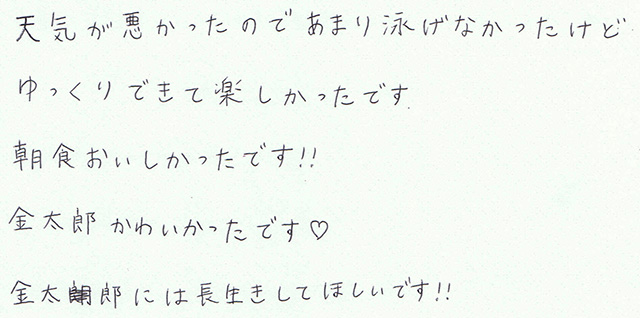 天気が悪かったのであまり泳げなかったけど
ゆっくりできて楽しかったです
朝食おいしかったです!!
金太郎かわいかったです♡
金太郎には長生きしてほしいです!!